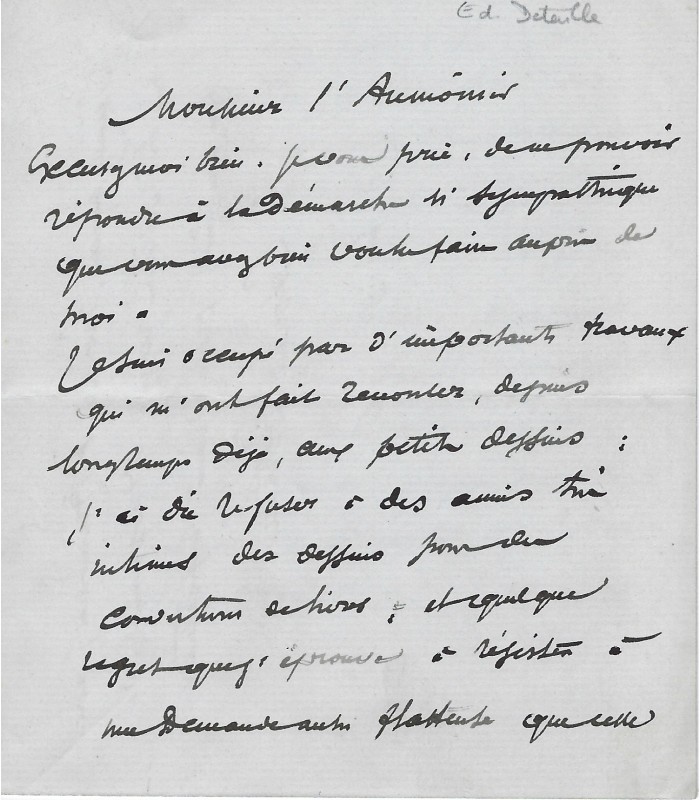 Ed. Detaille
Monsieur l'Aumônier
Excusez moi bien, je vous prie, de ne pouvoir
répondre à la Démarche si sympathique
que vous avez bien voulu faire auprès de
moi.
Je suis occupé par d'importants travaux
qui m'ont fait renoncer, depuis
longtemps déjà, aux petits dessins :
j'ai dû refuser à des amis très
intimes des dessins pour des
couvertures de livres ; et quelque
regret que j'éprouve à résister à
une Demande aussi flatteuse que celle